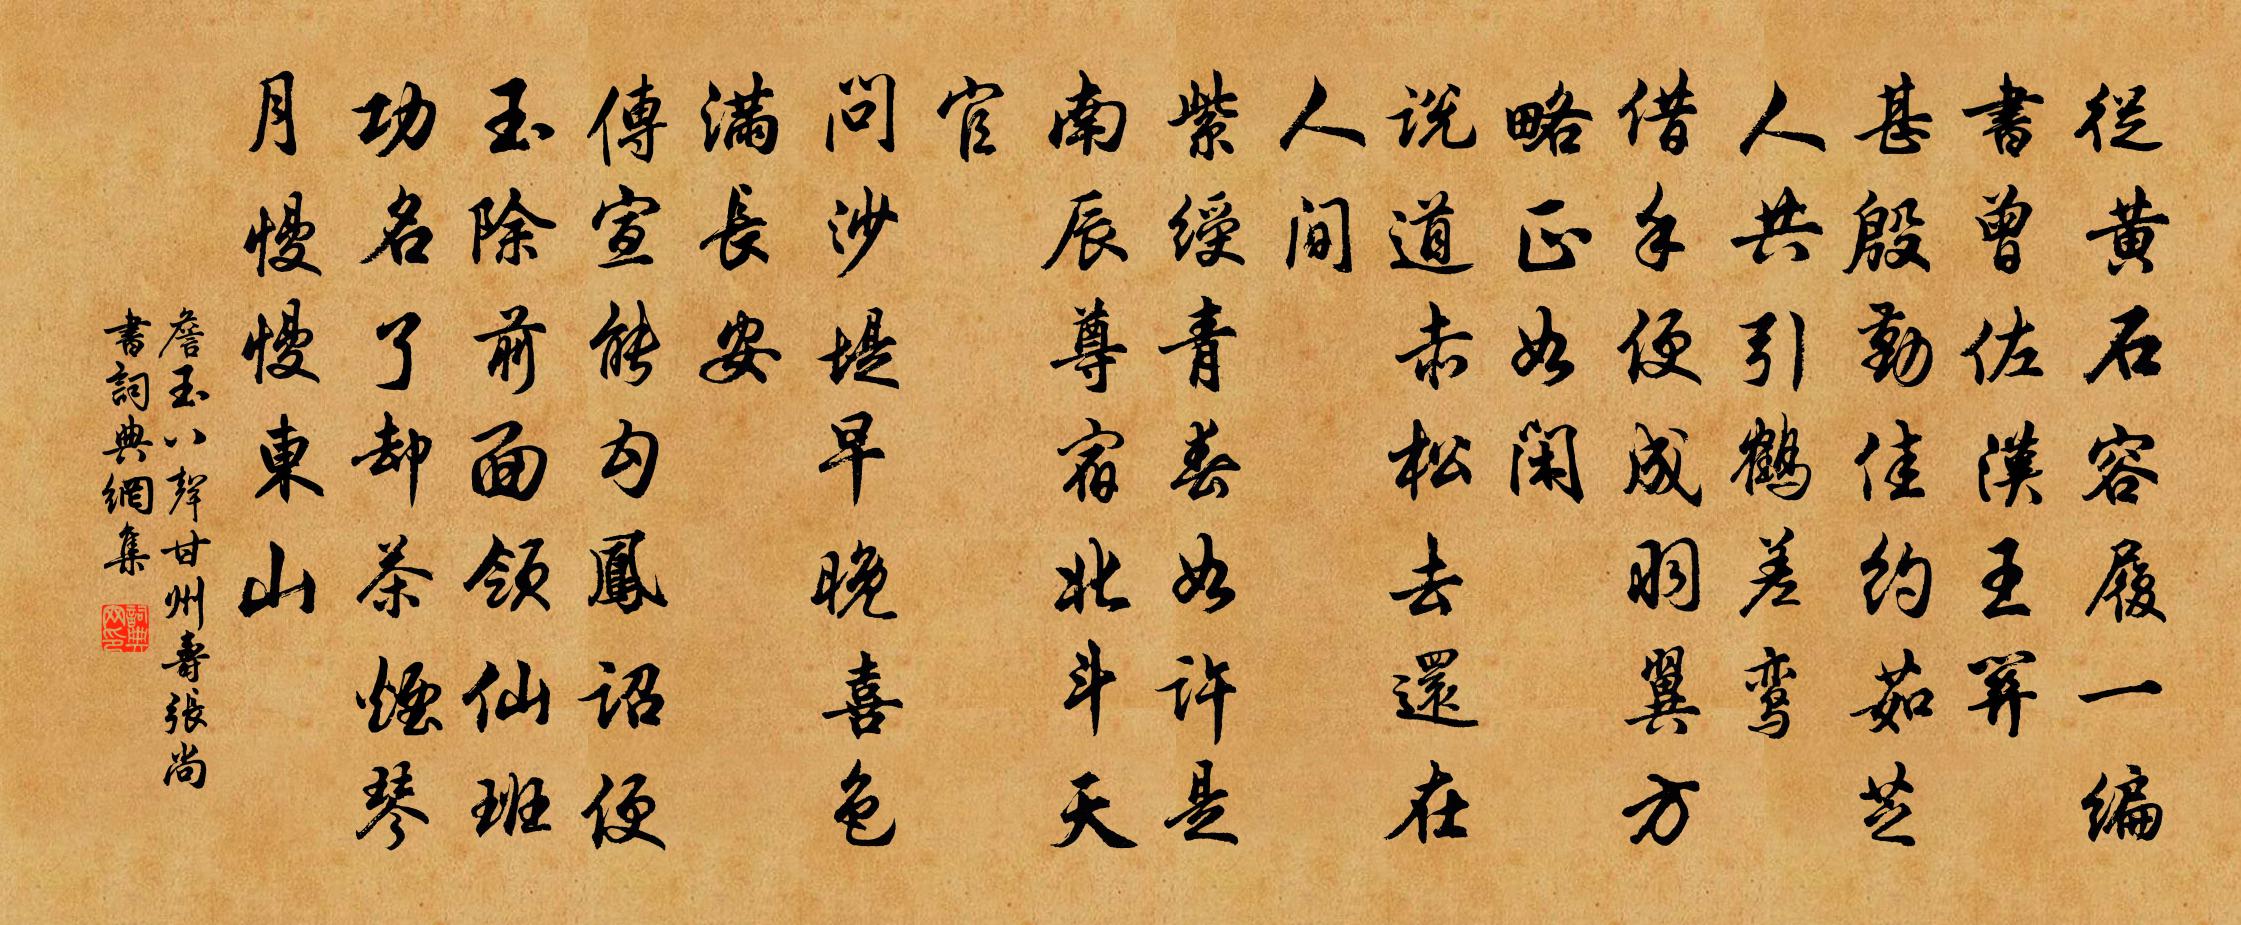 從黄石容履一編
書曾佐漢王開
甚殷勤佳約茹芝
人共引鶴差鸾
借手便成羽翼方
略正如閑
説道赤松去還在
人間
紫綬青春如許是
南辰尊宿北斗天
官
問沙堤早晚喜色
滿長安
傳宣能勾鳳詔便
玉除前面領仙班
功名了却茶煙琴
月慢慢東山
詹玉八聲甘州壽張尚
書詞典網集
詞典網印